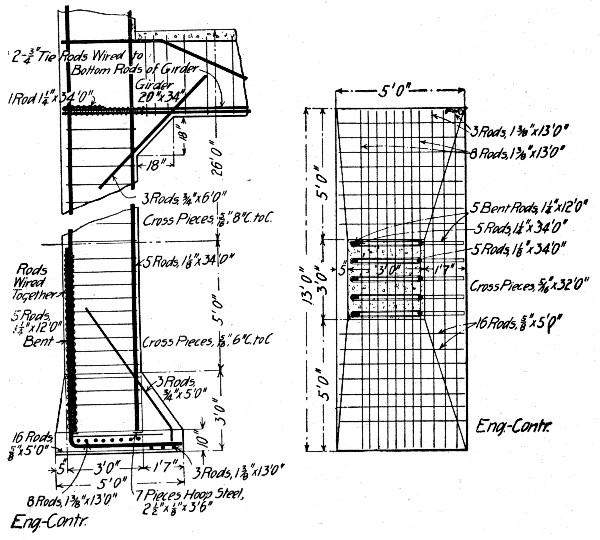 2-¾" Tie Rods Wired to
Bottom Rods of Girder
Girder
20"x34"
1 Rod 1¼"x34'0"
18"
18"
26'0"
3 Rods, ¾"x6'0"
Cross Pieces, 5/16", 8"C.toC.
5 Rods, 1⅛"x34'0"
Rods
Wired
Together
5 Rods,
1¼"x12'0"
Bent
5'0"
Cross Pieces, 5/16", 6"C.toC
3 Rods,
¾"x5'0"
3'0"
10"
16 Rods,
⅝"x5'0"
5"
3'0"
1'7"
5'0"
3 Rods, 1⅜"x13'0"
8 Rods, 1⅜"x13'0"
7 Pieces Hoop Steel,
2½"x⅛"x3'6"
Eng-Contr.
5'0"
3 Rods, 1⅜"x13'0"
8 Rods, 1⅜"x13'0"
5'0"
5 Bent Rods, 1¼"x12'0"
5 Rods, 1¼"x34'0"
5 Rods, 1⅛"x34'0"
5"
3'0"
1'7"
3'0"
13'0"
Cross Pieces, 5/16"x32'0"
16 Rods, ⅝"x5'0"
5'0"
Eng-Contr.